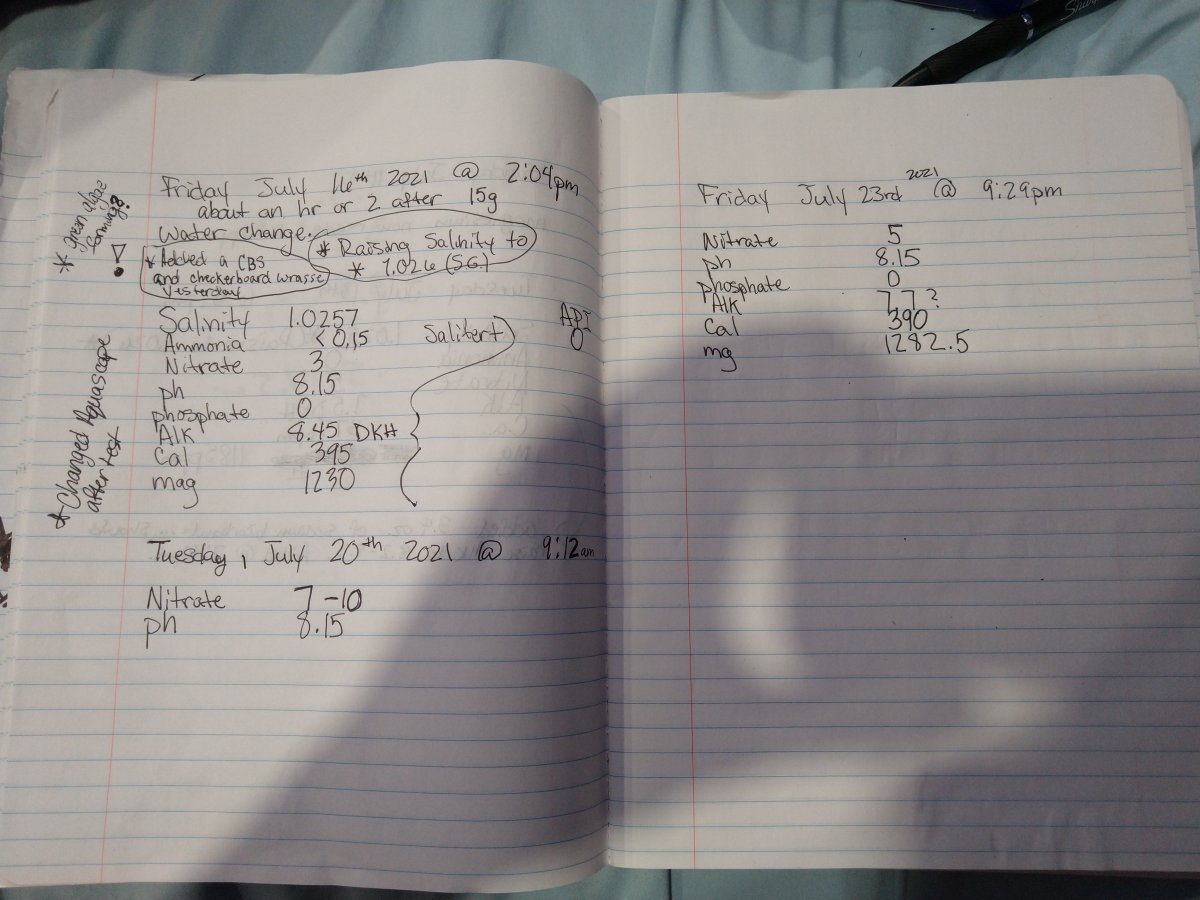 Friday July 16th 2021 @ 2:04pm
about an hr or 2 after 15g
Water change.
* Raising Salinity to
* 1.026 (SG)
* Added a CBS
and checkerboard wrasse
yesterday
* green algae
forming?
!
Salinity 1.0257
Ammonia <0.15
Nitrate 3
ph 8.15
phosphate 0
Alk 8.45 DKH
Cal 395
mag 1230
Salifert
API
0
* Changed Aquascape
after test
Tuesday, July 20th 2021 @ 9:12am
Nitrate 7-10
ph 8.15
Friday July 23rd 2021 @ 9:29pm
Nitrate 5
ph 8.15
phosphate 0
Alk 7.7?
Cal 390
mg 1282.5